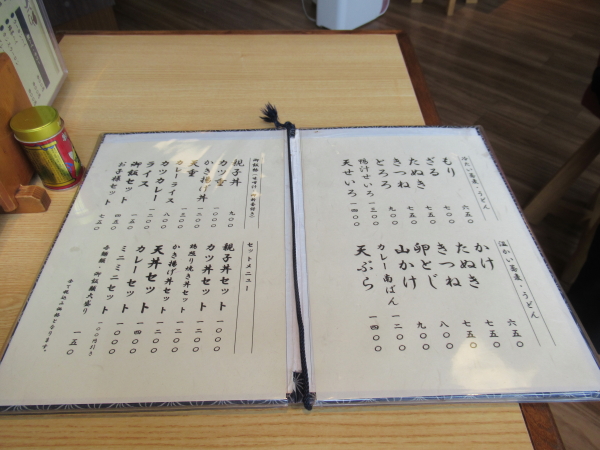 冷たい蕎麦・うどん
もり 六五〇
ざる 七五〇
たぬき 七五〇
きつね 八〇〇
とろろ 九〇〇
鴨汁せいろ 一三〇〇
天せいろ 一四〇〇
温かい蕎麦・うどん
かけ 六五〇
たぬき 七五〇
きつね 八〇〇
卵とじ 九〇〇
山かけ
カレー南ばん 一二〇〇
天ぷら 一四〇〇
親子丼 九〇〇
カツ重 一〇〇〇
かき揚げ丼
天重 一二〇〇
カレーライス 八〇〇
カツカレー 一二〇〇
ライス
御飯セット
お子様セット 七五〇
セットメニュー
親子丼セット 一一〇〇
カツ丼セット 一二〇〇
鶏照り焼き丼セット
かき揚げ丼セット
天丼セット 一四〇〇
カレーセット 一〇〇〇
ミニミニセット
各麺類・御飯類大盛り 一五〇
全て税込み価格となります。